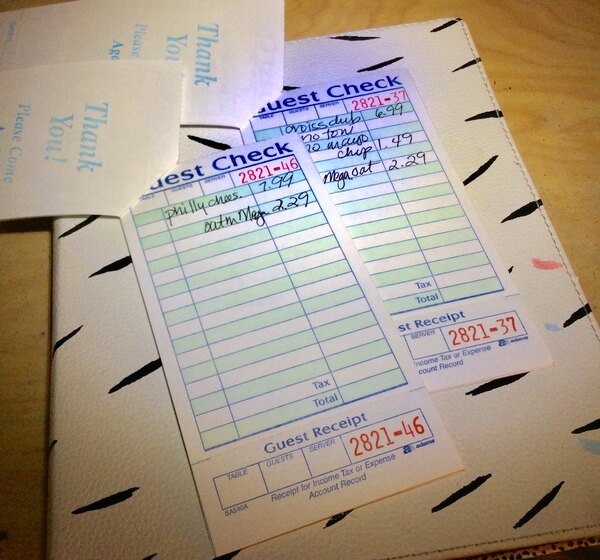 Thank
You
Please
Thank
You!
Please Come
Guest Check
TABLE GUESTS SERVER
2821-37
6.99
no tom
no mayo
chip 1.49
Mega oat 2.29
Tax
Total
st Receipt
SERVER
2821-37
Income Tax or Expense
ccount Record
adams
uest Check
GUESTS SERVER
2821-46
philly chees. 7.99
2.29
Tax
Total
Guest Receipt
TABLE GUESTS SERVER
2821-46
Receipt for Income Tax or Expense
Account Record
adams
SA540A